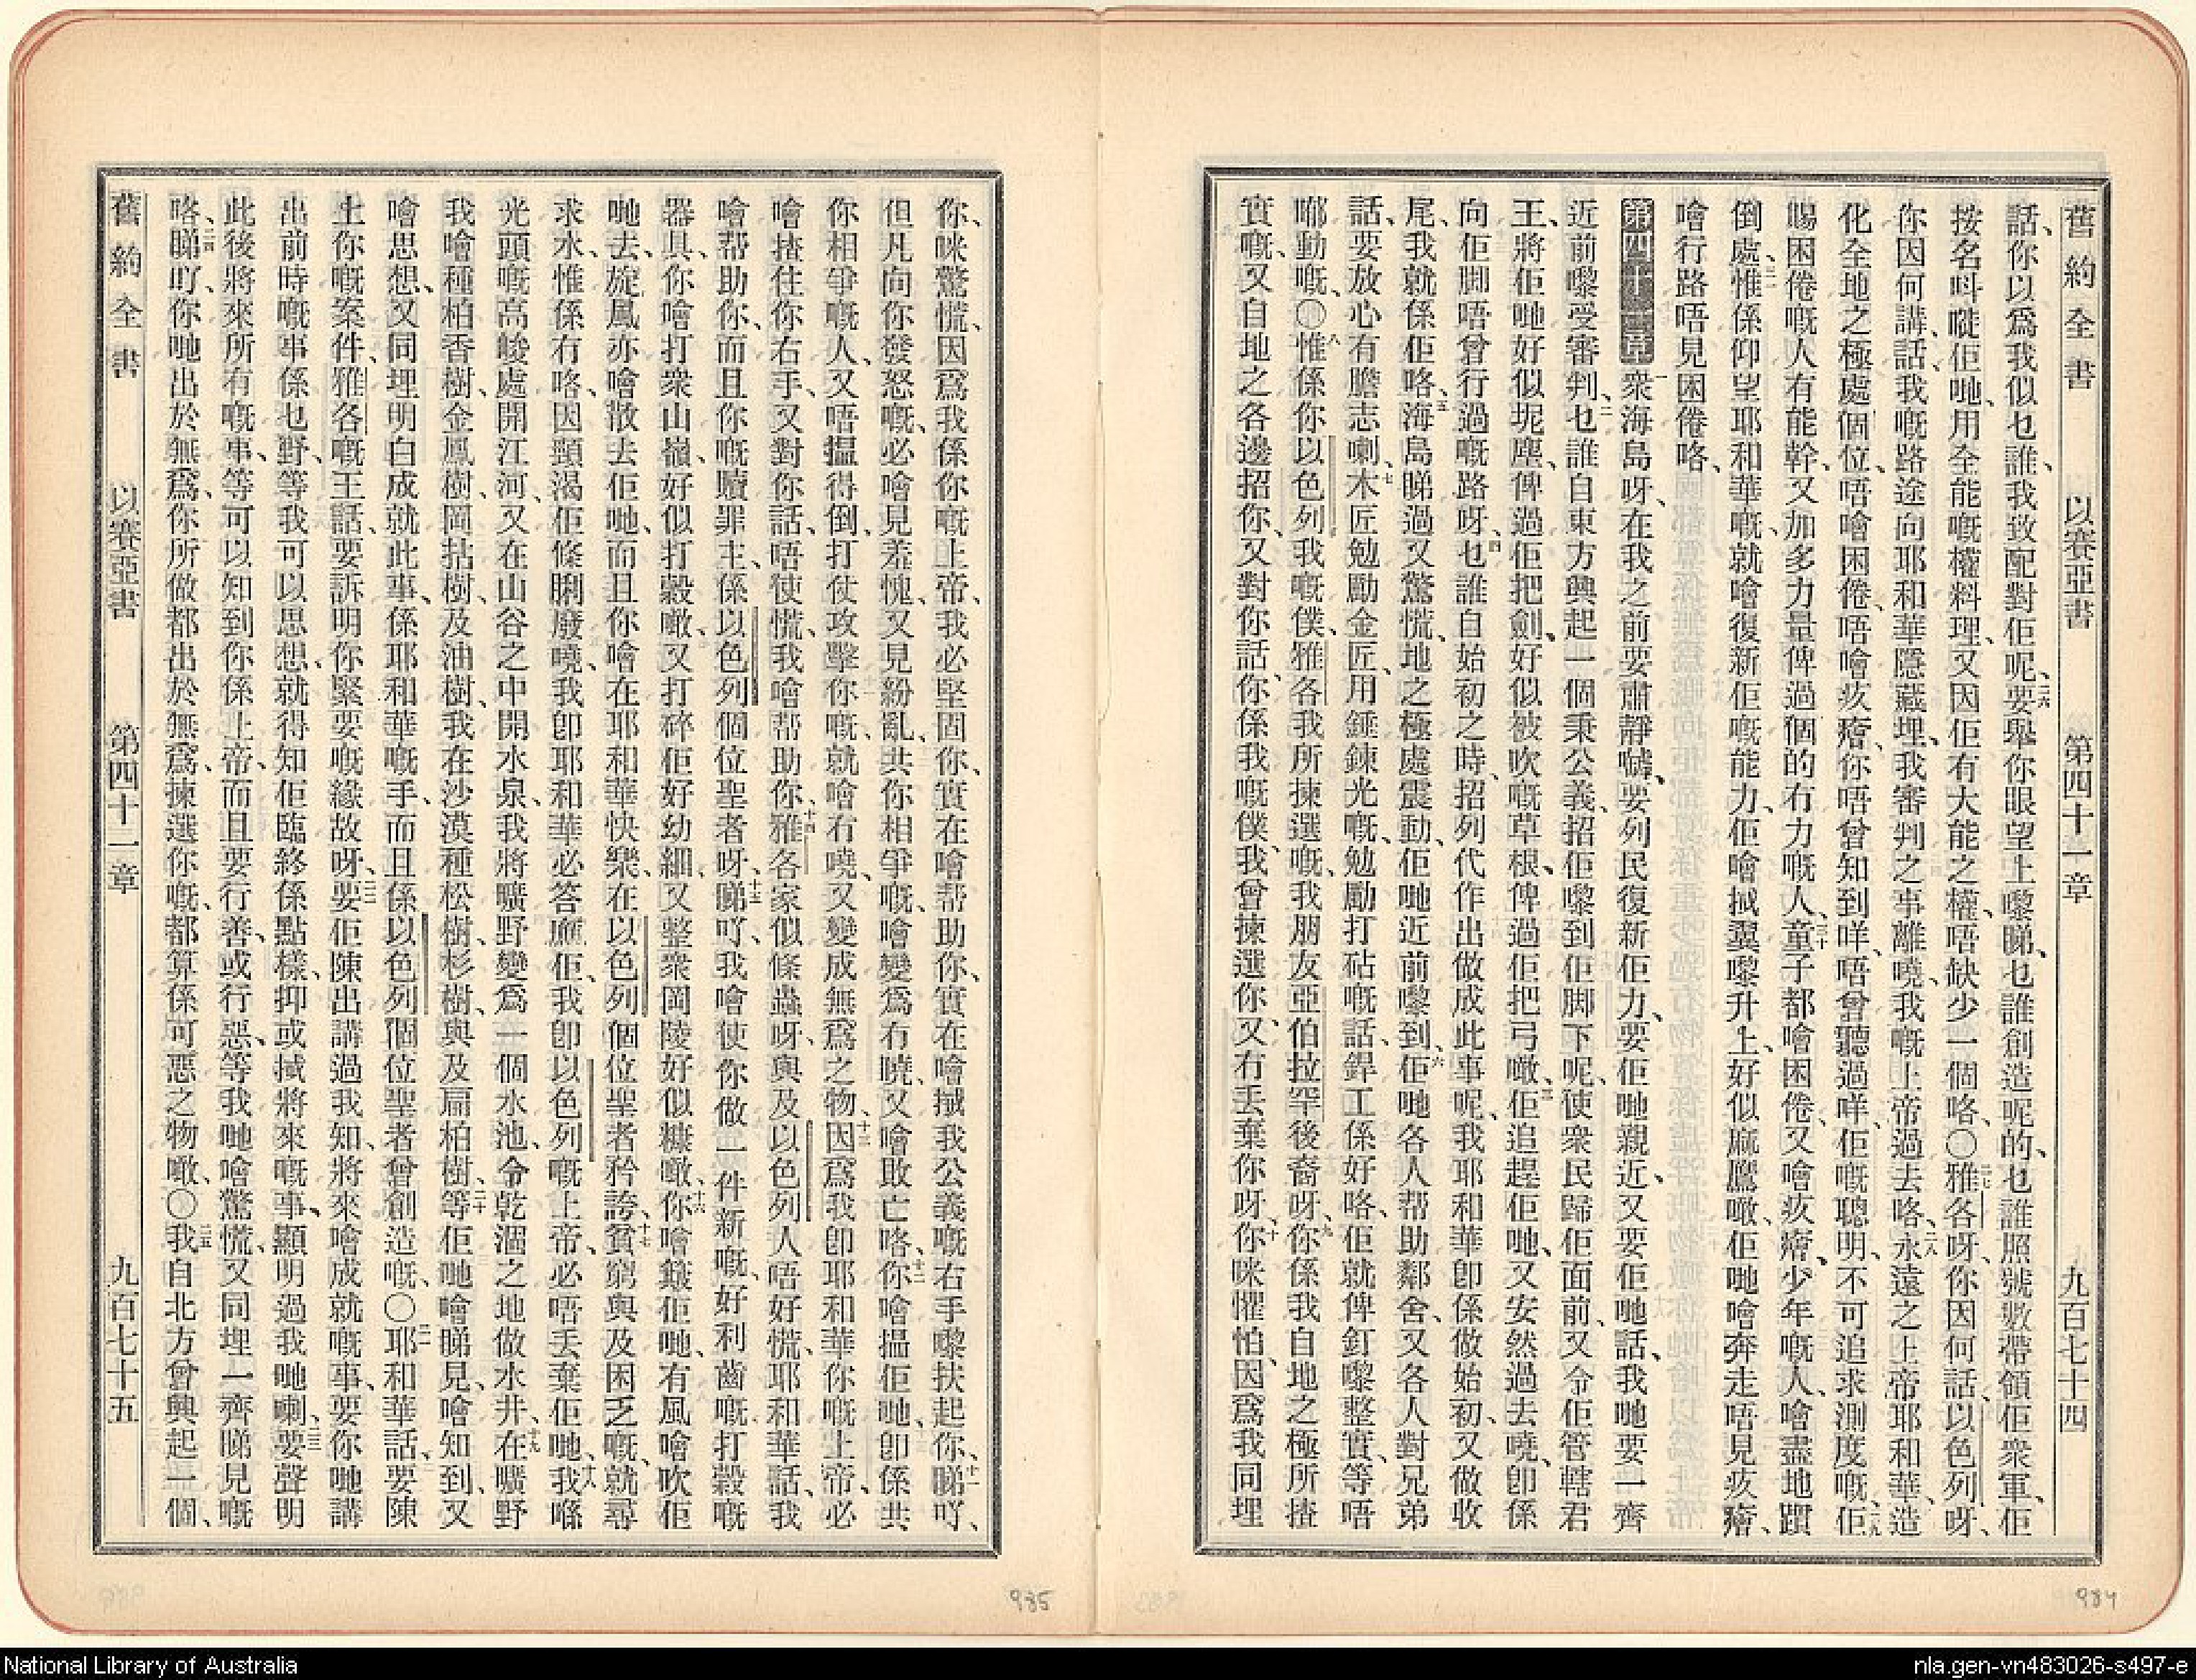 舊約全書　以賽亞書　第四十一章　九百七十四
話、你以爲我似乜誰、我致配對佢呢、二六要舉你眼望上嚟睇、乜誰創造呢的、乜誰照號數帶領佢衆軍、佢
按名叫嗻佢哋、用全能嘅權料理、又因佢有大能之權、唔缺少一個咯、〇二七雅各呀、你因何話、以色列呀、
你因何講、話我嘅路途向耶和華隱藏埋、我審判之事離嘵我嘅上帝過去咯、二八永遠之上帝耶和華、造
化全地之極處個位、唔噲困倦、唔噲攰癐、你唔曾知到咩、唔曾聽過咩、佢嘅聰明、不可追求測度嘅、二九佢
賜困倦嘅人有能幹、又加多力量俾過個的冇力嘅人、三十童子都噲困倦、又噲攰癐、少年嘅人、噲盡地躓
倒處、三一惟係仰望耶和華嘅、就噲復新佢嘅能力、佢噲搣翼嚟升上、好似麻鷹噉、佢哋噲奔走唔見攰癐、
噲行路唔見困倦咯、
第四十一章 一衆海島呀、在我之前要肅靜嚹、要列民復新佢力、要佢哋親近、又要佢哋話、我哋要一齊
近前嚟受審判、二乜誰自東方興起一個秉公義、招佢嚟到佢脚下呢、使衆民歸佢面前、又令佢管轄君
王、將佢哋好似坭塵、俾過佢把劍、好似被吹嘅草根、俾過佢把弓噉、三佢追趕佢哋、又安然過去嘵、卽係
向佢脚唔曾行過嘅路呀、四乜誰自始初之時、招列代作出做成此事呢、我耶和華卽係做始初、又做收
尾、我就係佢咯、五海島睇過又驚慌、地之極處震動、佢哋近前嚟到、六佢哋各人帮助鄰舍、又各人對兄弟
話、要放心有膽志喇、七木匠勉勵金匠、用錘鍊光嘅、勉勵打砧嘅、話、銲工係好咯、佢就俾釘嚟整實、等唔
啷動嘅、〇八惟係你以色列我嘅僕、雅各我所揀選嘅、我朋友亞伯拉罕後裔呀、九你係我自地之極所揸
實嘅、又自地之各邊招你、又對你話、你係我嘅僕、我曾揀選你、又冇丢棄你呀、十你咪懼怕、因爲我同埋
你、咪驚慌、因爲我係你嘅上帝、我必堅固你、實在噲帮助你、實在噲搣我公義嘅右手嚟扶起你、十一睇吖、
但凡向你發怒嘅、必噲見羞愧、又見紛亂、共你相爭嘅、噲變爲冇嘵、又噲敗亡咯、十二你噲搵佢哋卽係共
你相爭嘅人、又唔搵得倒、打仗攻擊你嘅、就噲冇嘵、又變成無爲之物、十三因爲我卽耶和華你嘅上帝、必
噲揸住你右手、又對你話、唔使慌、我噲帮助你、十四雅各家似條蟲呀、與及以色列人唔好慌、耶和華話、我
噲帮助你、而且你嘅贖罪主、係以色列個位聖者呀、十五睇吖、我噲使你做一件新嘅、好利齒嘅、打穀嘅
器具、你噲打衆山嶺、好似打穀噉、又打碎佢好幼細、又整衆岡陵好似糠噉、十六你噲簸佢哋、有風噲吹佢
哋去、旋風亦噲散去佢哋、而且你噲在耶和華快樂、在以色列個位聖者矜誇、十七貧窮與及困乏嘅、就尋
求水、惟係冇咯、因頸渴佢條脷廢嘵、我卽耶和華必答應佢、我卽以色列嘅上帝、必唔丢棄佢哋、十八我喺
光頭嘅高峻處開江河、又在山谷之中開水泉、我將曠野變爲一個水池、令乾涸之地做水井、十九在曠野
我噲種柏香樹、金鳳樹、岡拈樹、及油樹、我在沙漠種松樹、杉樹、與及扁柏樹、二十等佢哋噲睇見、噲知到、又
噲思想、又同埋明白成就此事、係耶和華嘅手、而且係以色列個位聖者曾創造嘅、〇二一耶和華話、要陳
上你嘅案件、雅各嘅王話、要訴明你緊要嘅緣故呀、二二要佢陳出講過我知、將來噲成就嘅事、要你哋講
出前時嘅事係乜野、等我可以思想、就得知佢臨終係點樣、抑或搣將來嘅事、顯明過我哋喇、二三要聲明
此後將來所有嘅事、等可以知到你係上帝、而且要行善、或行惡、等我哋噲驚慌、又同埋一齊睇見嘅
咯、二四睇吖、你哋出於無爲、你所做都出於無爲、揀選你嘅、都算係可惡之物噉、〇二五我自北方曾興起一個、
舊約全書　以賽亞書　第四十一章　九百七十五
984
985
National Library of Australia
nla.gen-vn483026-s497-e